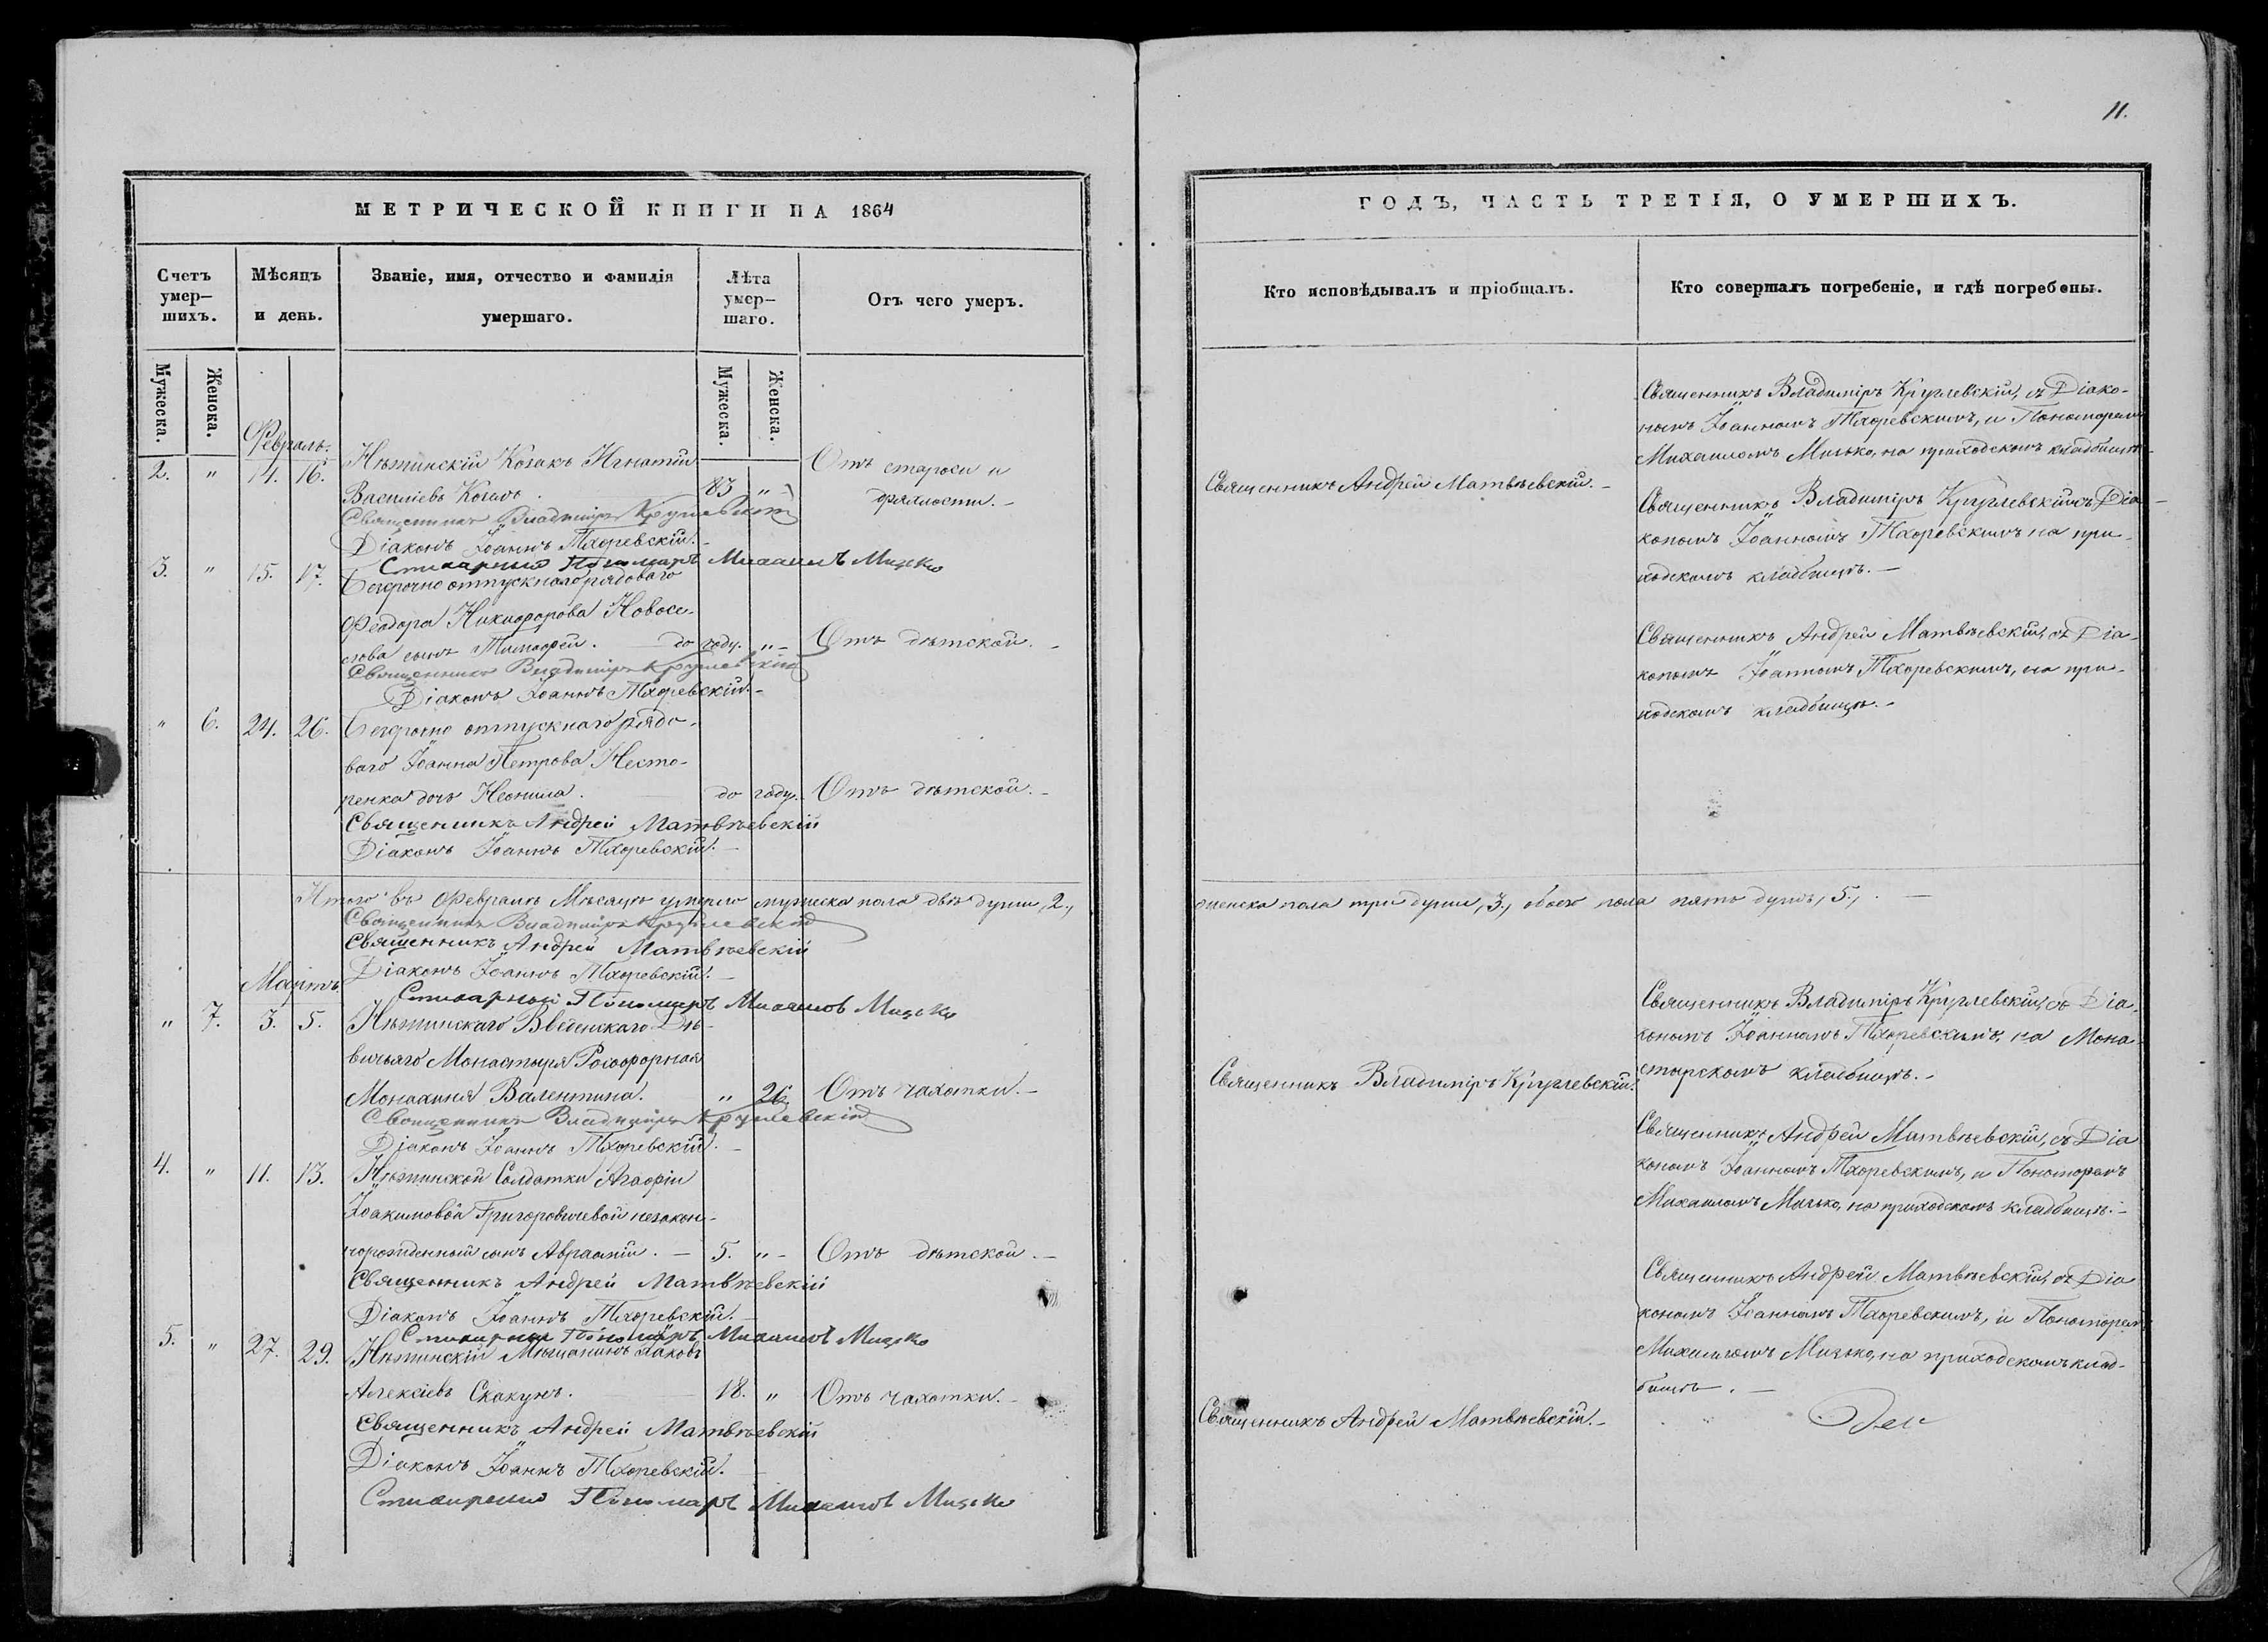 11.
МЕТРИЧЕСКОЙ КНИГИ НА 1864
Счетъ умер-
шихъ.
Мѣсяцъ
и день.
Званіе, имя, отчество и фамилія
умершаго.
Лѣта
умер-
шаго.
Отъ чего умеръ.
Мужеска.
Женска.
Мужеска.
Женска.
Февраль.
2. " 14. 16. Нѣжинскій Козакъ Игнатій
Василіевъ 83 " Отъ старости и
дряхлости.
Священникъ Владиміръ Круглевскій
Діаконъ Іоаннъ Тхоревскій.
Стихарный Пономаръ Михаилъ Мизько
3. " 15. 17. Безсрочно отпускнаго рядоваго
Феодора Никифорова Новосе-
лова сынъ Тимофей. до году. " Отъ дѣтской.
Священникъ Владиміръ Круглевскій
Діаконъ Іоаннъ Тхоревскій.
" 6. 24. 26. Безсрочно отпускнаго рядо-
ваго Іоанна Петрова Несто-
ренка дочь Неонила. до году. Отъ дѣтской.
Священникъ Андрей Матвѣевскій
Діаконъ Іоаннъ Тхоревскій.
Итого въ Февралѣ Мѣсяцѣ умерло мужеска пола двѣ души, 2.,
Священникъ Владиміръ Круглевскій
Священникъ Андрей Матвѣевскій
Діаконъ Іоаннъ Тхоревскій.
Стихарный Пономаръ Михаилъ Мизько
Мартъ
" 7. 3. 5. Нѣжинскаго Введенскаго Дѣ-
вичьяго Монастыря Рясофорная
Монахиня Валентина. " 26. Отъ чахотки.
Священникъ Владиміръ Круглевскій
Діаконъ Іоаннъ Тхоревскій.
4. " 11. 13. Нѣжинской Солдатки Агафіи
Іоакимовой Григоровичевой незакон-
норожденный сынъ Авраамій. 5. " Отъ дѣтской.
Священникъ Андрей Матвѣевскій
Діаконъ Іоаннъ Тхоревскій.
Стихарный Пономаръ Михаилъ Мизько
5. " 27. 29. Нѣжинскій Мѣщанинъ Іаковъ
Алексіевъ Скакунъ. 18. " Отъ чахотки.
Священникъ Андрей Матвѣевскій
Діаконъ Іоаннъ Тхоревскій.
Стихарный Пономаръ Михаилъ Мизько
ГОДЪ, ЧАСТЬ ТРЕТІЯ, О УМЕРШИХЪ.
Кто исповѣдывалъ и пріобщалъ.
Кто совершалъ погребеніе, и гдѣ погребены.
Священникъ Владиміръ Круглевскій, съ Діако-
номъ Іоанномъ Тхоревскимъ, и Пономаремъ
Михаиломъ Мизько, на приходскомъ кладбищѣ.
Священникъ Андрей Матвѣевскій.
Священникъ Владиміръ Круглевскій съ Діа-
кономъ Іоанномъ Тхоревскимъ на при-
ходскомъ кладбищѣ.
Священникъ Андрей Матвѣевскій, съ Діа-
кономъ Іоанномъ Тхоревскимъ, на при-
ходскомъ кладбищѣ.
женска пола три души, 3., обоего пола пять душъ, 5.,
Священникъ Владиміръ Круглевскій, съ Діа-
кономъ Іоанномъ Тхоревскимъ, на Мона-
стырскомъ кладбищѣ.
Священникъ Владиміръ Круглевскій.
Священникъ Андрей Матвѣевскій, съ Діа
кономъ Іоанномъ Тхоревскимъ, и Пономаремъ
Михаиломъ Мизько, на приходскомъ кладбищѣ.
Священникъ Андрей Матвѣевскій, съ Діа
кономъ Іоанномъ Тхоревскимъ, и Пономаремъ
Михаиломъ Мизько, на приходскомъ клад-
бищѣ.
Священникъ Андрей Матвѣевскій.